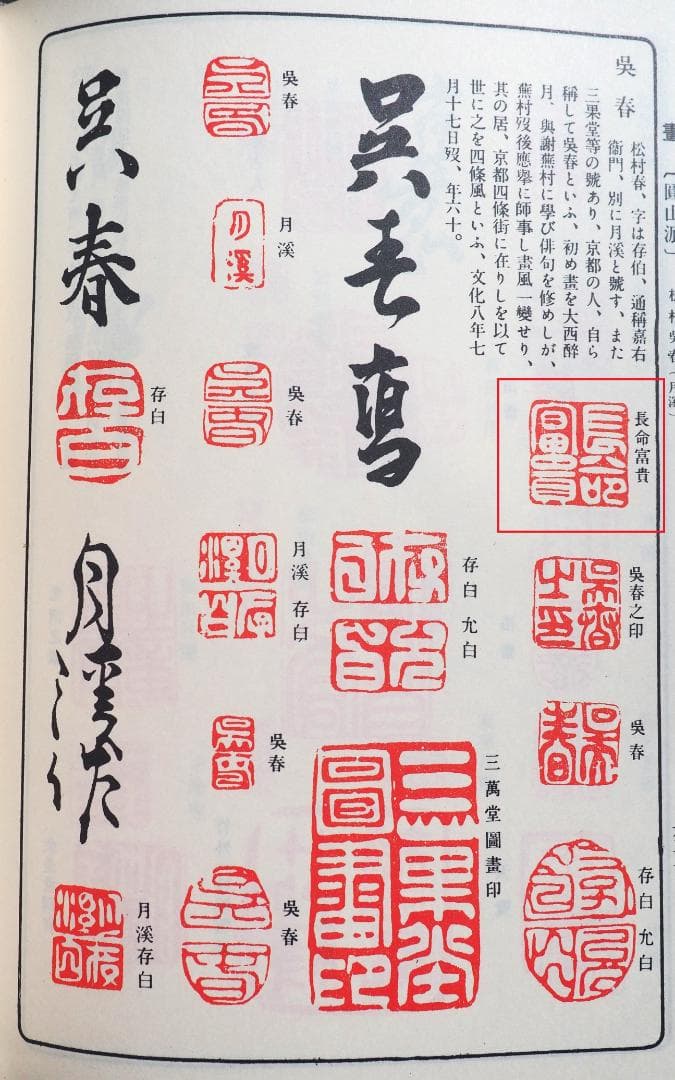 畫〔圓山派〕
松村吳春(月溪)
吳春
松村春、字は存伯、通稱嘉右
衞門、別に月溪と號す、また
三果堂等の號あり、京都の人、自ら
稱して吳春といふ、初め畫を大西醉
月、與謝蕪村に學び俳句を修めしが、
蕪村歿後應擧に師事し畫風一變せり、
其の居、京都四條街に在りしを以て
世に之を四條風といふ、文化八年七
月十七日歿、年六十。
長命富貴
吳春之印
吳春
存白 允白
吳春寫
存白 允白
三萬堂圖畫印
吳春
月溪
吳春
月溪 存白
吳春
吳春
吳春
存白
月溪作
月溪存白